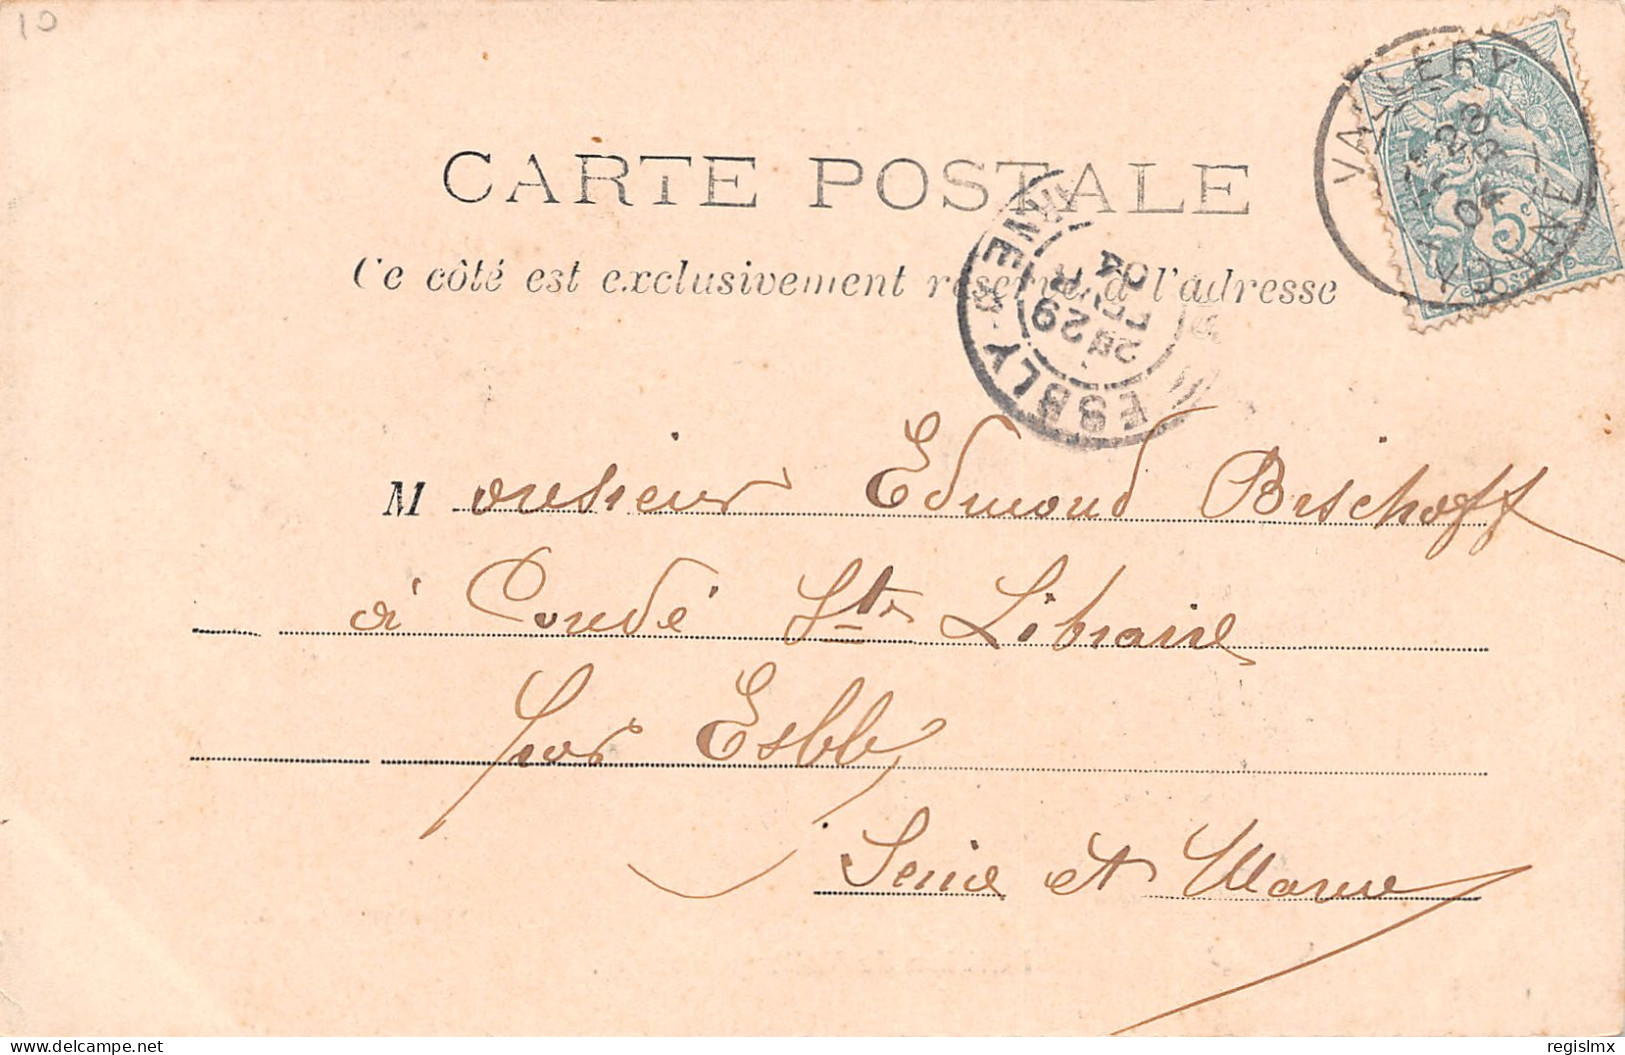 10
CARTE POSTALE
Ce côté est exclusivement réservé à l'adresse
VALLERY
YONNE
28
04
5c
POSTES
ESBLY
NE
2E 29
04
Monsieur Edmond Bischoff
à Condé Ste Libraire
par Esbly
Seine et Marne
delcampe.net
regislmx